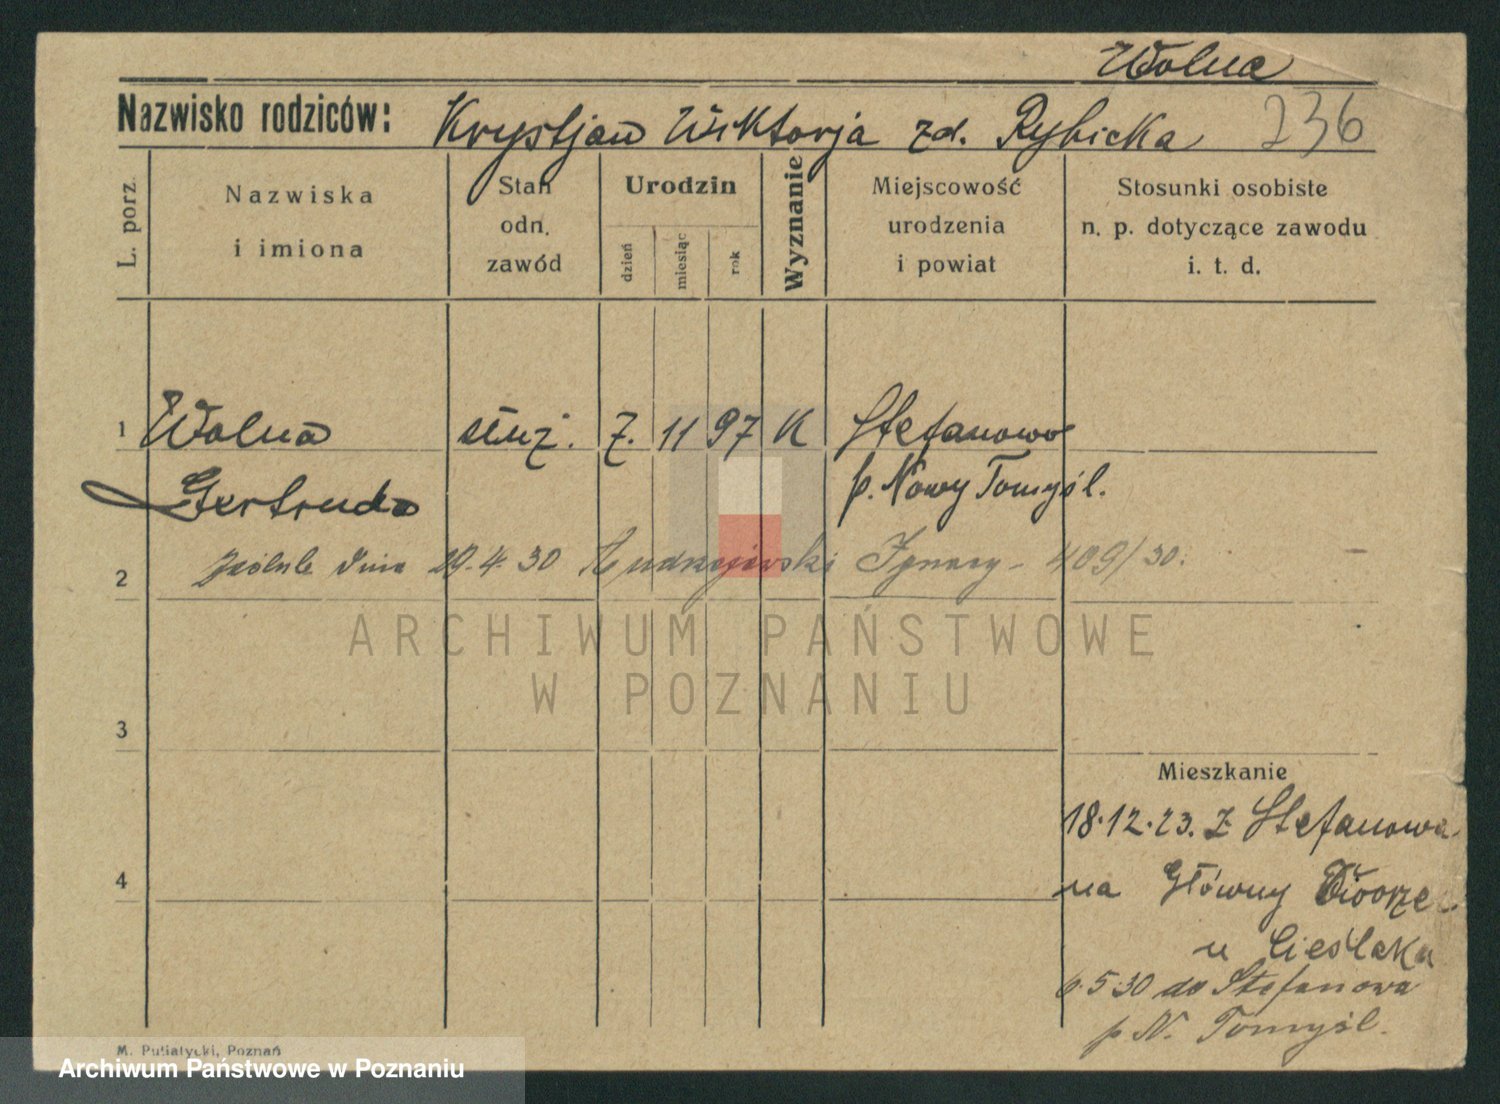 Wolna
Nazwisko rodziców: Krystjan Wiktorja zd. Rybicka 236
L. porz.
Nazwiska
i imiona
Stan
odn.
zawód
Urodzin
dzień
miesiąc
rok
Wyznanie
Miejscowość
urodzenia
i powiat
Stosunki osobiste
n. p. dotyczące zawodu
i. t. d.
1 Wolna służ. 7. 11 97 K Stefanowo
Gertruda p. Nowy Tomyśl.
2 dnia 29.4.30 Andrzejewski Ignacy - 409/30.
ARCHIWUM PAŃSTWOWE
W POZNANIU
3
Mieszkanie
18.12.23. z Stefanowa
4
na Główny Dworzec
u Cieślaka
6.5.30 do Stefanowa
p N. Tomyśl.
M. Putiatycki, Poznań
Archiwum Państwowe w Poznaniu